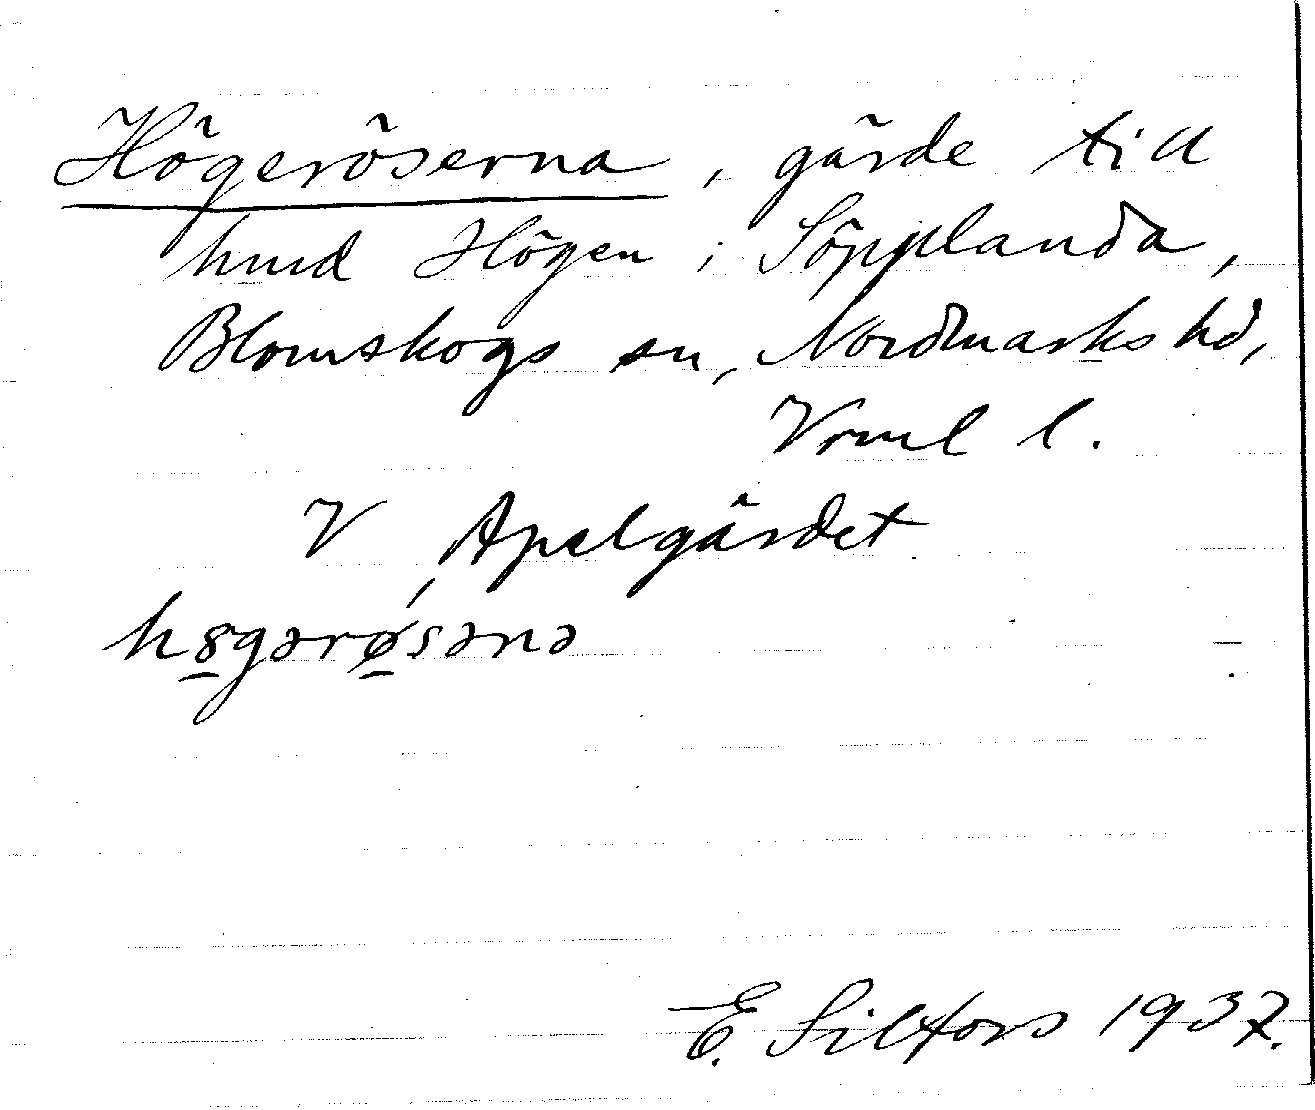 Högeröserna, gärde till
hmd Högen i Söpplanda,
Blomskogs sn, Nordmarks hd,
Vrml l.
V Apelgärdet
høgərǿsənə
E. Silfors 1937.